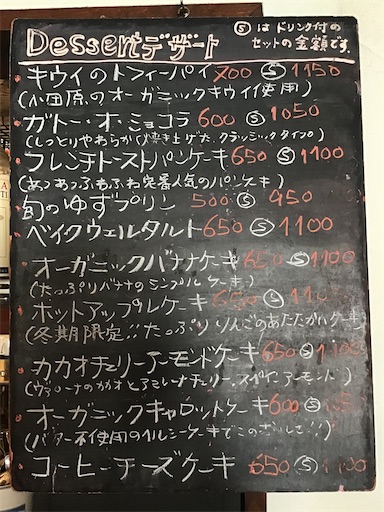 Dessert デザート
Ⓢは ドリンク付の
セットの金額です。
キウイのトフィーパイ 700 Ⓢ 1150
(小田原のオーガニックキウイ使用)
ガトー・オ・ショコラ 600 Ⓢ 1050
(しっとりやわらかく焼き上げた クラッシックタイプ)
フレンチトーストパンケーキ 650 Ⓢ 1100
(あつあつふわふわ定番人気のパンケーキ)
旬のゆずプリン 500 Ⓢ 950
ベイクウェルタルト 650 Ⓢ 1100
オーガニックバナナケーキ 650 Ⓢ 1100
(たっぷりバナナのシンプルケーキ)
ホットアップルケーキ 650 Ⓢ
(冬期限定!! たっぷりりんごのあたたかいケーキ
カカオチェリーアーモンドケーキ 650 Ⓢ 1100
(ヴァローナのカカオとアメリカチェリー、スペインアーモンド)
オーガニックキャロットケーキ 600 Ⓢ
(バター不使用のヘルシーケーキでこのおいしさ!!)
コーヒーチーズケーキ 650 Ⓢ 1100